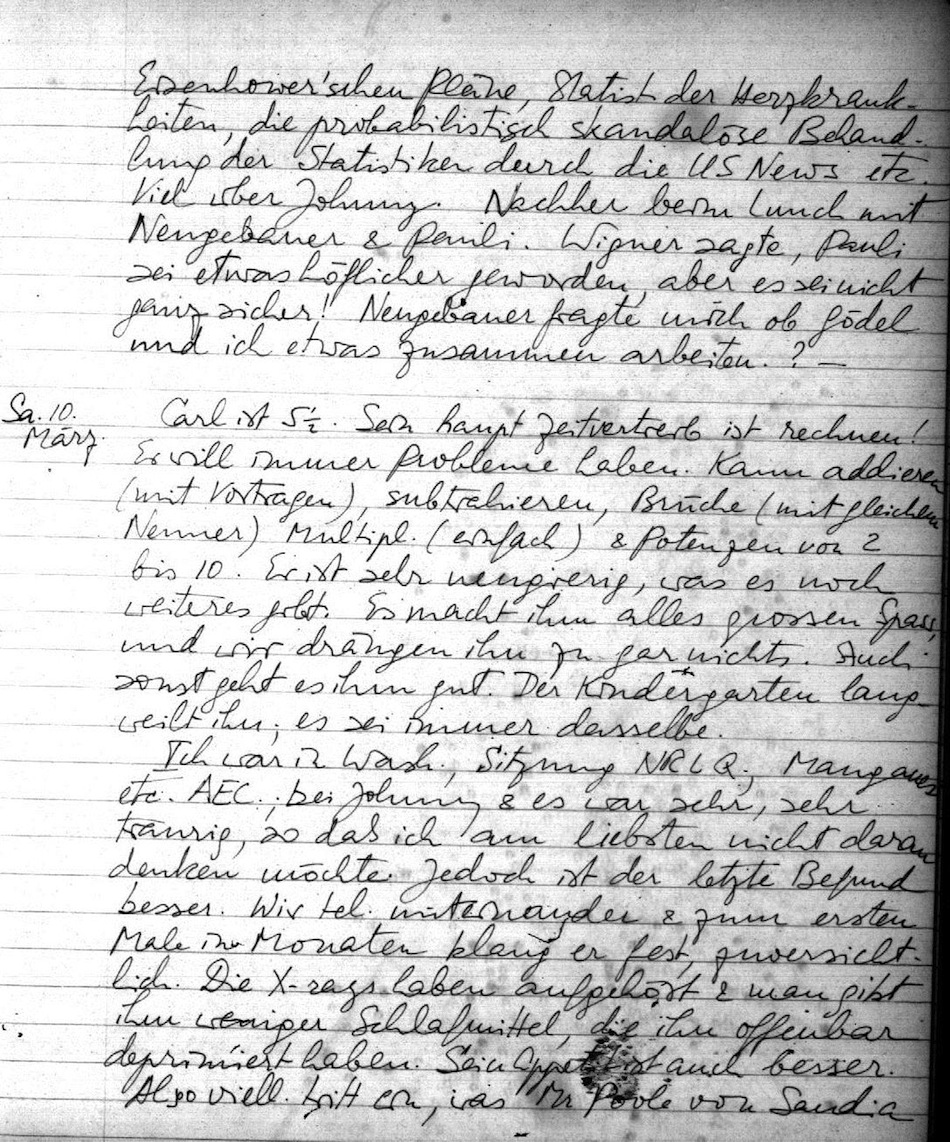 Eisenhower'schen Pläne, Statist. der Herzkrank-
heiten, die probabilistisch skandalöse Behand-
lung der Statistiken durch die US News etc.
Viel über Johnny. Nachher beim Lunch mit
Neugebauer & Pauli. Wigner sagte, Pauli
sei etwas höflicher geworden, aber es sei nicht
ganz sicher! Neugebauer fragte mich ob Gödel
und ich etwas zusammen arbeiten. ? —
Sa. 10.
März.
Carl ist 5½. Sein haupt Zeitvertreib ist rechnen!
Er will immer Probleme haben. Kann addieren
(mit Vortragen), subtrahieren, Brüche (mit gleichem
Nenner) Multipl. (einfach) & Potenzen von 2
bis 10. Er ist sehr neugierig, was es noch
weiteres gibt. Es macht ihm alles grossen Spass,
und wir drängen ihn zu gar nichts. Auch
sonst geht es ihm gut. Der Kindergarten lang-
weilt ihn; es sei immer dasselbe.
Ich war in Wash., Sitzung NRLQ.,
etc. AEC.; bei Johnny & es war sehr, sehr
traurig, so das ich am liebsten nicht daran
denken möchte. Jedoch ist der letzte Befund
besser. Wir tel. miteinander & zum ersten
Male in Monaten klang er fest, zuversicht-
lich. Die X-rays haben aufgehört & man gibt
ihm weniger Schlafmittel, die ihn offenbar
deprimiert haben. Sein Appetit ist auch besser.
Also viell. tritt ein, was Mr Poole von Sandia